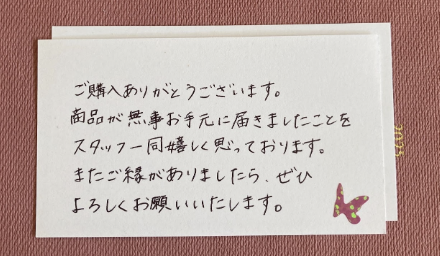 ご購入ありがとうございます。
商品が無事お手元に届きましたことを
スタッフ一同嬉しく思っております。
またご縁がありましたら、ぜひ
よろしくお願いいたします。